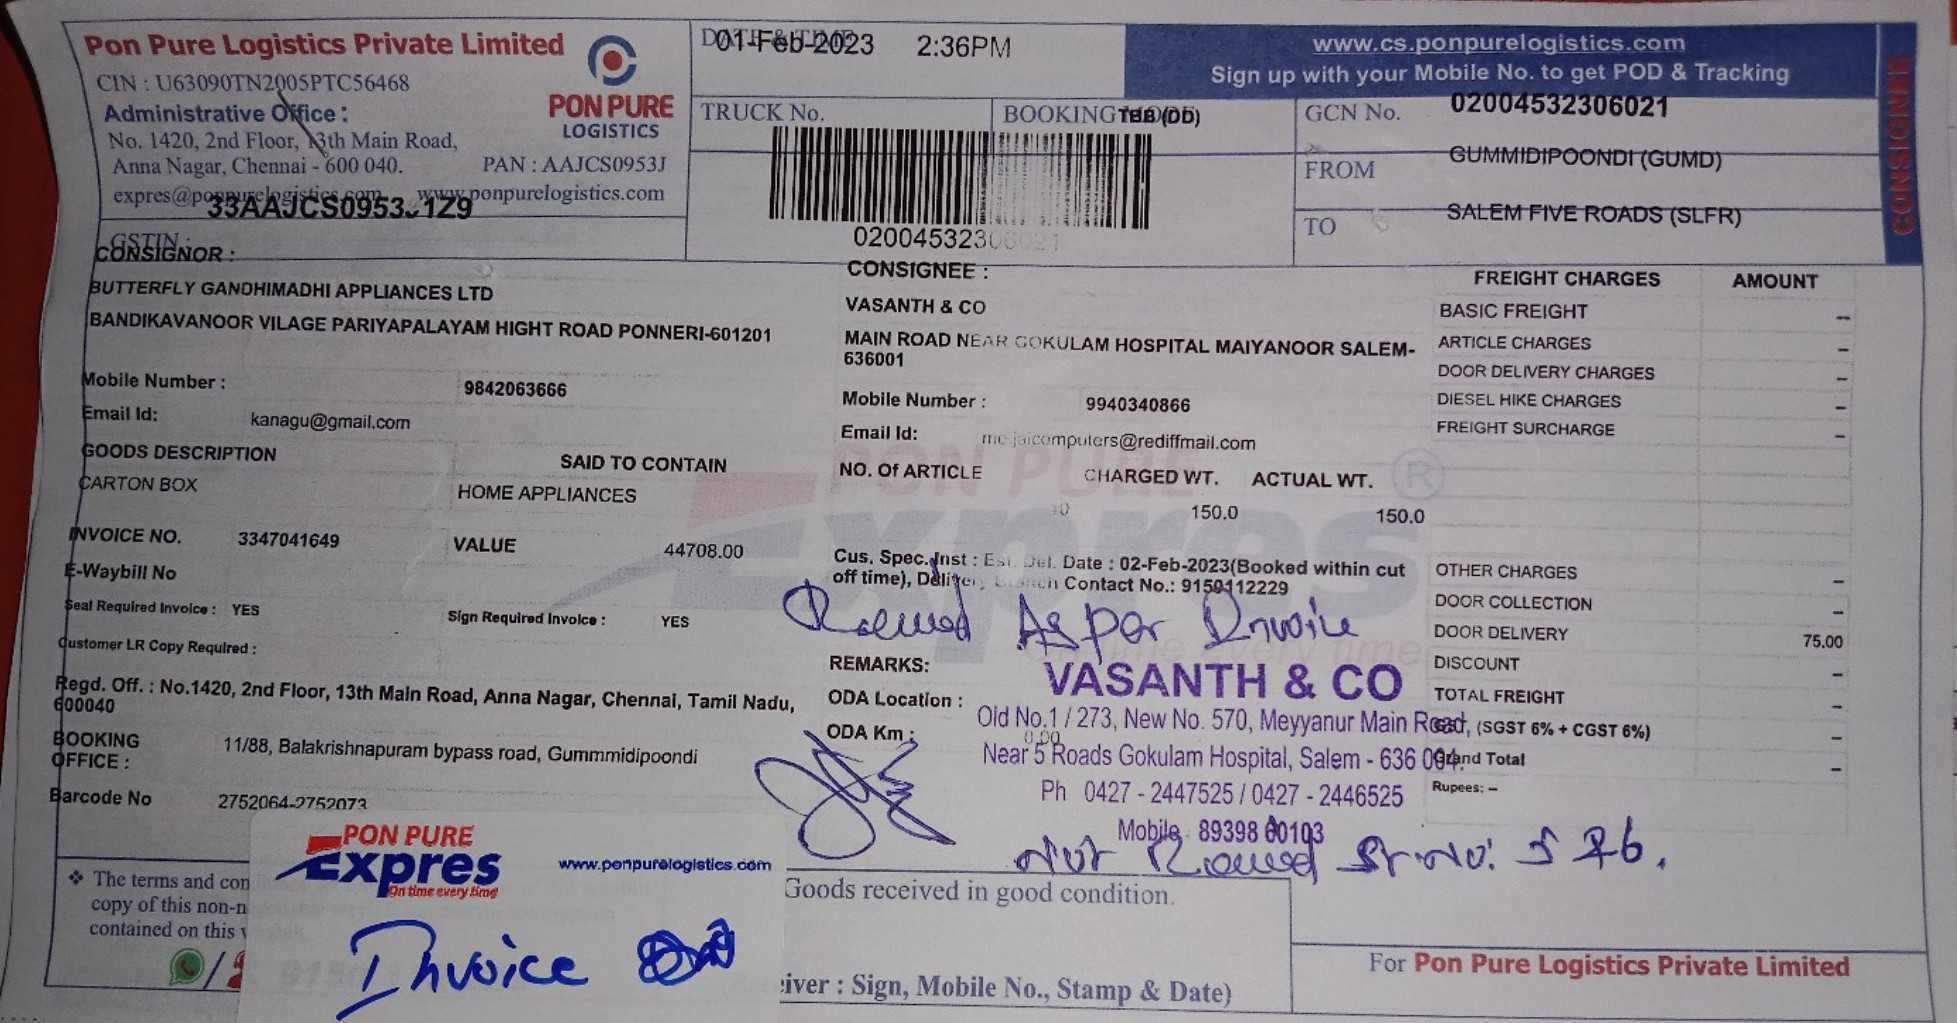 Pon Pure Logistics Private Limited
CIN : U63090TN2005PTC56468
Administrative Office :
No. 1420, 2nd Floor, 13th Main Road,
Anna Nagar, Chennai - 600 040. PAN : AAJCS0953J
expres@ponpurelogistics.com www.ponpurelogistics.com
GSTIN :
PON PURE
LOGISTICS
DATE & TIME 01-Feb-2023 2:36PM
www.cs.ponpurelogistics.com
Sign up with your Mobile No. to get POD & Tracking
TRUCK No.
BOOKING MODE TBB (DD)
GCN No. 02004532306021
FROM GUMMIDIPOONDI (GUMD)
TO SALEM FIVE ROADS (SLFR)
02004532306021
CONSIGNOR :
BUTTERFLY GANDHIMADHI APPLIANCES LTD
BANDIKAVANOOR VILAGE PARIYAPALAYAM HIGHT ROAD PONNERI-601201
Mobile Number : 9842063666
Email Id: kanagu@gmail.com
CONSIGNEE :
VASANTH & CO
MAIN ROAD NEAR GOKULAM HOSPITAL MAIYANOOR SALEM-
636001
Mobile Number : 9940340866
Email Id: jaicomputers@rediffmail.com
FREIGHT CHARGES AMOUNT
BASIC FREIGHT --
ARTICLE CHARGES --
DOOR DELIVERY CHARGES --
DIESEL HIKE CHARGES --
FREIGHT SURCHARGE --
GOODS DESCRIPTION SAID TO CONTAIN
CARTON BOX HOME APPLIANCES
NO. Of ARTICLE CHARGED WT. ACTUAL WT.
150.0 150.0
INVOICE NO. 3347041649 VALUE 44708.00
E-Waybill No
Seal Required Invoice : YES Sign Required Invoice : YES
Customer LR Copy Required :
Cus. Spec. Inst : Est. Del. Date : 02-Feb-2023(Booked within cut
off time), Delivery Branch Contact No.: 9150112229
Received As Per Invoice
OTHER CHARGES --
DOOR COLLECTION --
DOOR DELIVERY 75.00
DISCOUNT --
TOTAL FREIGHT --
(SGST 6% + CGST 6%) --
Grand Total --
Rupees: --
REMARKS:
ODA Location :
ODA Km : 0.00
VASANTH & CO
Old No.1 / 273, New No. 570, Meyyanur Main Road,
Near 5 Roads Gokulam Hospital, Salem - 636 004.
Ph 0427 - 2447525 / 0427 - 2446525
Mobile 89398 60103
Not Received Sr No:
Regd. Off. : No.1420, 2nd Floor, 13th Main Road, Anna Nagar, Chennai, Tamil Nadu,
600040
BOOKING
OFFICE : 11/88, Balakrishnapuram bypass road, Gummmidipoondi
Barcode No 2752064-2752073
PON PURE
Expres
On time every time!
www.ponpurelogistics.com
Invoice
The terms and con
copy of this non-n
contained on this
Goods received in good condition.
iver : Sign, Mobile No., Stamp & Date)
For Pon Pure Logistics Private Limited